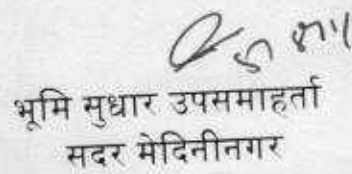 भूमि सुधार उपसमाहर्ता
सदर मेदिनीनगर